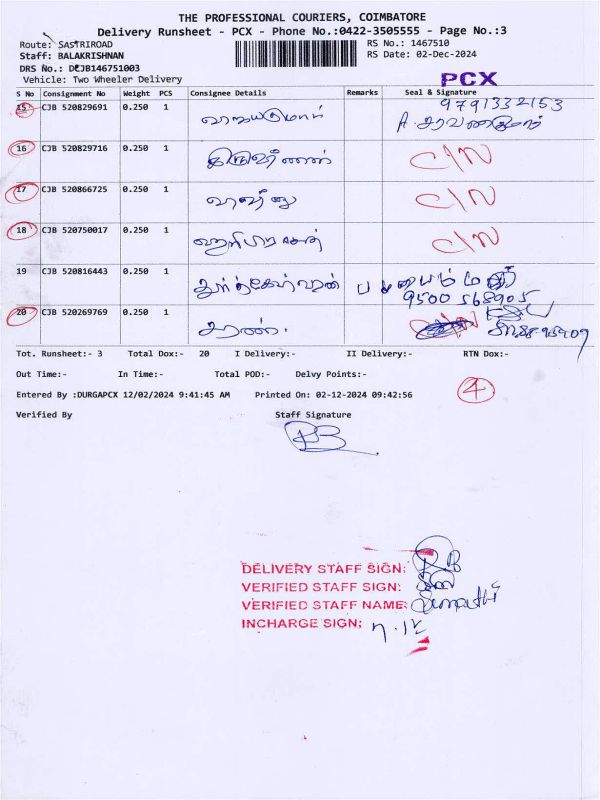 THE PROFESSIONAL COURIERS, COIMBATORE
Delivery Runsheet - PCX - Phone No.:0422-3505555 - Page No.:3
Route: SASTRIROAD
RS No.: 1467510
Staff: BALAKRISHNAN
RS Date: 02-Dec-2024
DRS No.: DCJB146751003
Vehicle: Two Wheeler Delivery
PCX
S No Consignment No Weight PCS Consignee Details Remarks Seal & Signature
9791332153
15 CJB 520829691 0.250 1
A. சரவணகுமார்
16 CJB 520829716 0.250 1 C/N
17 CJB 520866725 0.250 1 C/N
18 CJB 520750017 0.250 1 ஹரிபிரசாத் C/N
19 CJB 520816443 0.250 1 கார்த்திகேயன்
9500568905
20 CJB 520269769 0.250 1 சரண்.
Tot. Runsheet:- 3 Total Dox:- 20 I Delivery:- II Delivery:- RTN Dox:-
Out Time:- In Time:- Total POD:- Delvy Points:-
Entered By :DURGAPCX 12/02/2024 9:41:45 AM Printed On: 02-12-2024 09:42:56
4
Verified By Staff Signature
DELIVERY STAFF SIGN:
VERIFIED STAFF SIGN:
VERIFIED STAFF NAME: Sumathi
INCHARGE SIGN: 7.12